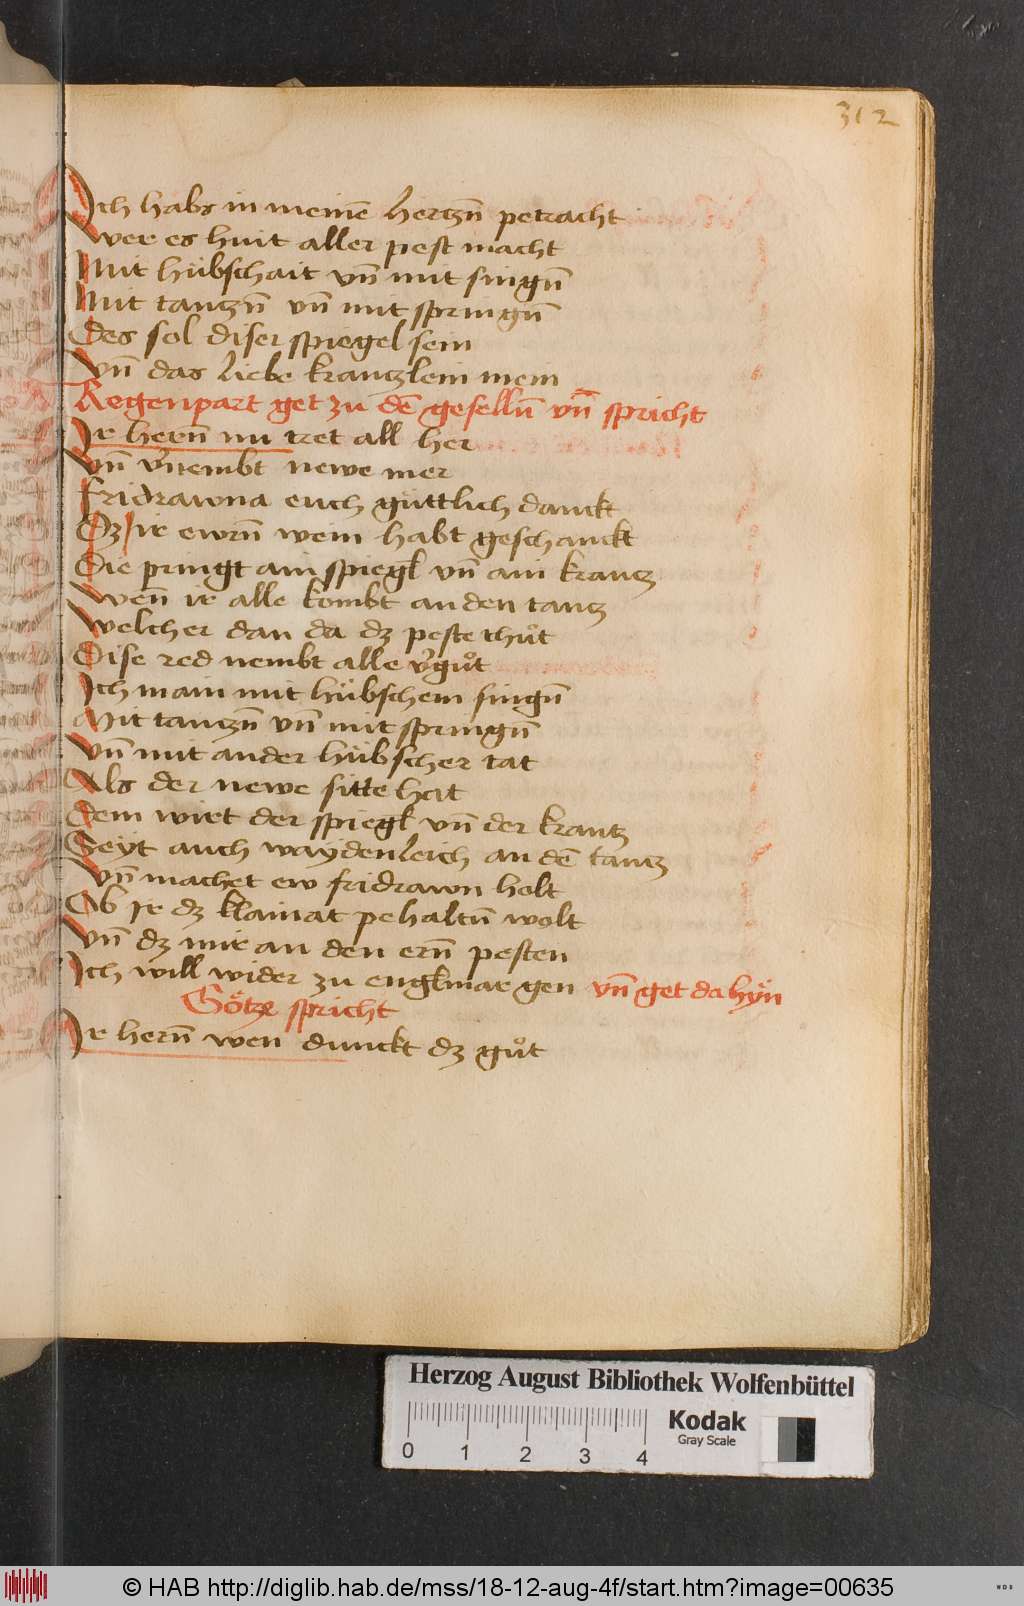 312
Ich habs in meinē hertzn̄ petracht
wer es huit aller pest macht
Mit hübschait vn̄ mit singn̄
Mit tantzn̄ vn̄ mit springn̄
Des sol diser spiegel sein
Vn̄ das liebe krantzlein mein
Regenpart get zu dē geselln̄ vn̄ spricht
Ir hern̄ nu tret all her
Vn̄ v'nembt newe mer
fridrawna euch güttlich danckt
Dz ir ewrn̄ wein habt geschanckt
Die pringt ain spiegl vn̄ ain krantz
Wen̄ ir alle kombt an den tantz
Welcher dan da dz peste thůt
Dise red nembt alle v'gůt
Ich main mit hübschem singn̄
Mit tantzn̄ vn̄ mit springn̄
Vn̄ mit ander hübscher tat
Als der newe sitte hat
Dem wirt der spiegl vn̄ der krantz
Seyt auch waydenleich an dē tantz
Vn̄ machet ew fridrawn holt
Ob ir dz klainat pehaltn̄ wolt
Vn̄ dz mir an den ern̄ pesten
Ich will wider zu englmar gen vn̄ get da hÿn
Götze spricht
Ir hern̄ wen dunckt dz gůt
Herzog August Bibliothek Wolfenbüttel
Kodak
Gray Scale
0 1 2 3 4
© HAB http://diglib.hab.de/mss/18-12-aug-4f/start.htm?image=00635